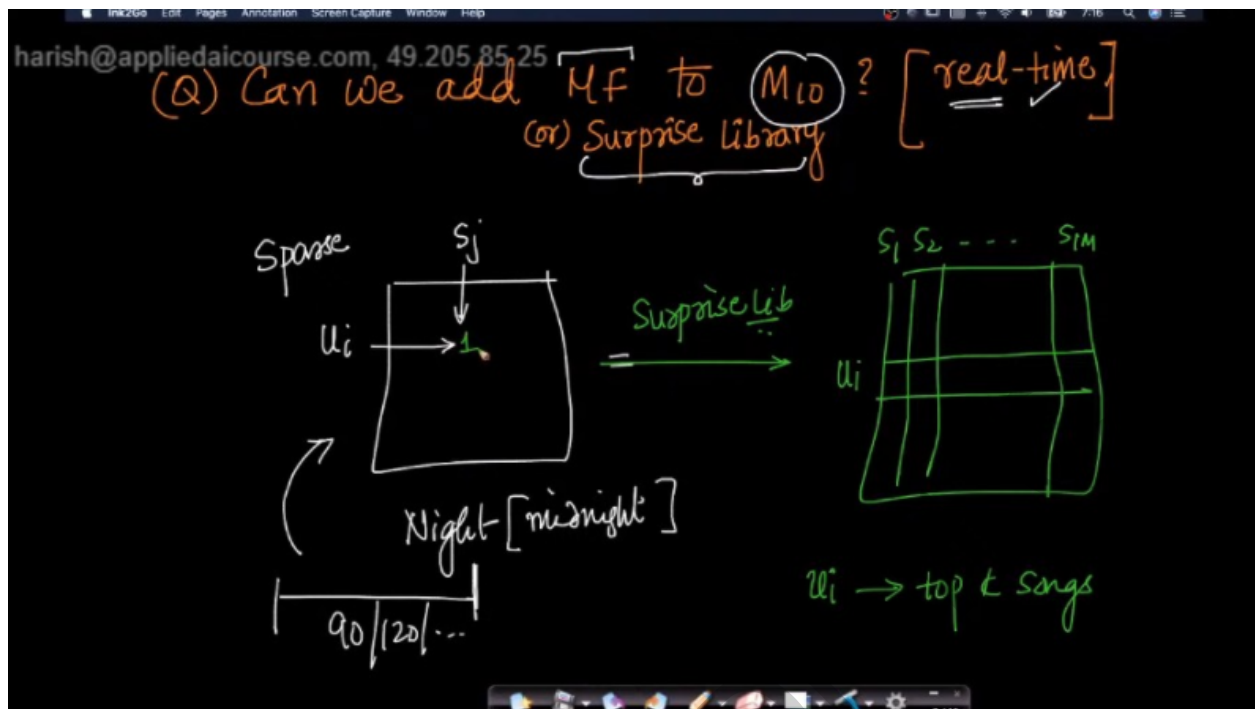 Ink2Go Edit Pages Annotation Screen Capture Window Help 7:16
harish@appliedaicourse.com, 49.205.85.25
(Q) Can we add MF to M10 ? [real-time]
(or) Surprise Library
Sparse
Sj
Ui
1
Surprise Lib
S1 S2 - - - - S1M
Ui
Night [midnight]
90/120/...
Ui → top k songs